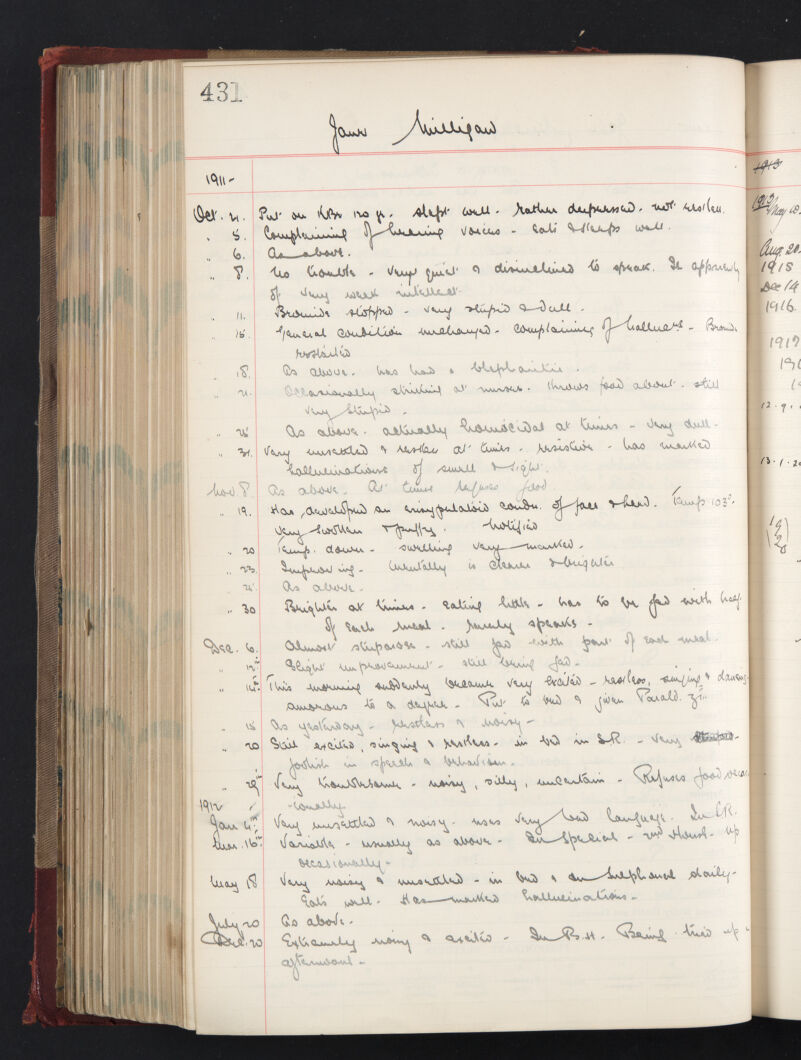 431
Jane Milligan
1911-
Oct. 4. Put on KBr 120 gr. Slept well. Rather depressed. not restless.
" 5. Complaining of hearing voices - Eats & sleeps well.
" 6. As above.
" 8. No trouble - very quiet & disinclined to speak. Is apparently
of very weak intellect.
" 11. Bromide stopped - very stupid & dull.
" 15. General condition unchanged - complaining of hallucns - Brom.
restarted
" 18. As above. has had a blepharitis.
" 21. Occasionally striking at nurses. throws food about. still
very stupid.
" 25 As above. actually homocidal at times - very dull.
" 31. Very unsettled & restless at times - resistive - has marked
hallucinations of smell & sight.
Nov 8. As above. At times refuses food
" 19. Has developed an erysypelatoid condn. of face & head. Temp 103°.
very swollen & puffy. Notified
" 20 Temp. down - swelling very marked.
" 23. Improving - Mentally is clearer & brighter
As above.
" 30 Brighter at times - Eating little - has to be fed with half
of each meal - rarely speaks -
Dec. 6. Almost stuporose - still fed with part of each meal.
" 12th Slight improvement - still being fed -
" 14th This morning suddenly became very excited - restless, singing & dancing,
amorous to a degree - Put to bed & given Parald.
" 15 As yesterday - restless & noisy -
" 20 Still excited, singing & restless - in bed in S.R. - Very
foolish in speech & behaviour.
" 29th Very troublesome - noisy, silly, uncertain - Refuses food occas-
1912 -ionally.
Jan 4th Very unsettled & noisy - uses very bad language. In S.R.
Mar. 16th Variable - usually as above. In Special - 2nd House - up
occasionally -
May 18 Very noisy & unsettled - in bed & on Sulphonal daily -
Eats well. Has marked hallucinations -
July 20 As above.
Dec. 20 Extremely noisy & excited - In B.H. Being tried up
afternoons -
1913
1913 May 18
Aug. 20
1915
Dec 14
1916
1917
12.9.
13.1.20